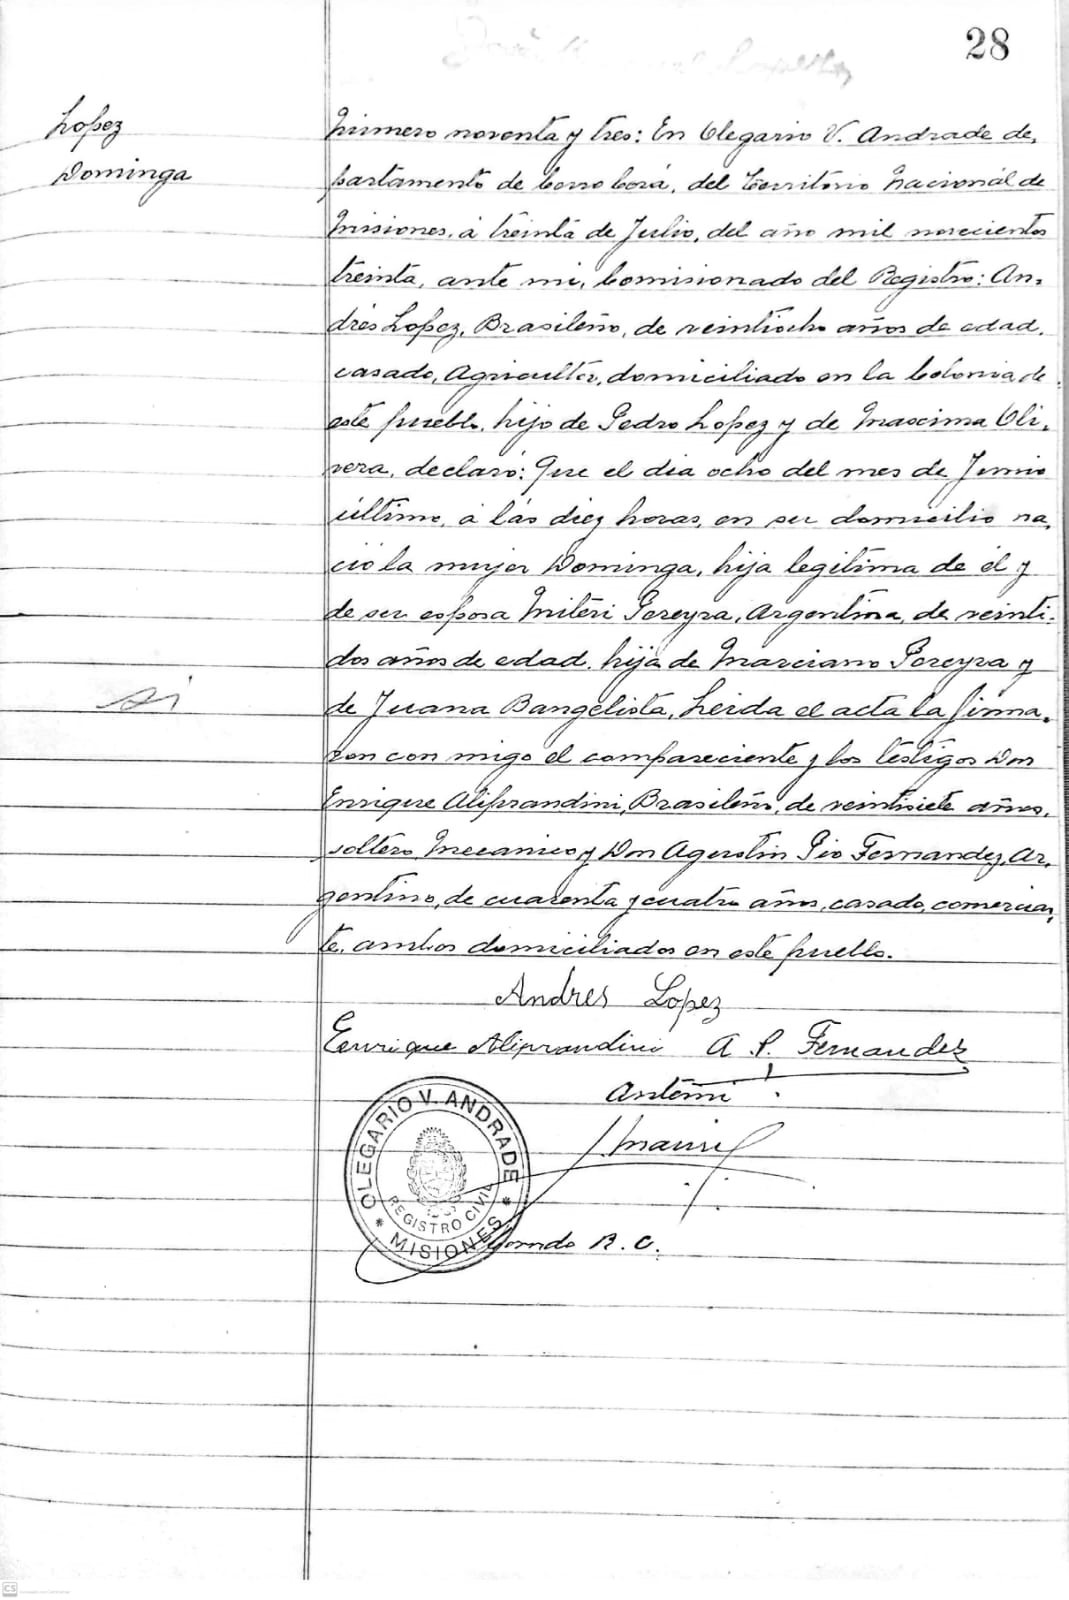 28
Lopez
Dominga
Número noventa y tres: En Olegario V. Andrade de,
partamento de Cerro Corá, del Territorio Nacional de
Misiones, á treinta de Julio, del año mil novecientos
treinta, ante mi, Comisionado del Registro: An,
drés Lopez, Brasileño, de veintiocho años de edad,
casado, Agricultor, domiciliado en la Colonia de
este pueblo, hijo de Pedro Lopez y de Maxcima Oli,
vera, declaró: Que el dia ocho del mes de Junio
último, á las diez horas, en su domicilio na,
ció la mujer Dominga, hija legitima de él y
de su esposa Miteri Pereyra, Argentina, de veinti-
dos años de edad, hija de Marciano Pereyra y
si
de Juana Bangelista, Leida el acta la firma,
ron con migo el compareciente y los testigos Don
Enrique Aliprandini, Brasileño, de veintisiete años,
soltero, Mecanico y Don Agustin Pio Fernandez, Ar,
gentino, de cuarenta y cuatro años, casado, comercian,
te, ambos domiciliados en este pueblo.
Andres Lopez
Enrique Aliprandini A. P. Fernandez
Antemi
OLEGARIO V. ANDRADE
REGISTRO CIVIL
* MISIONES *
R. C.
CS